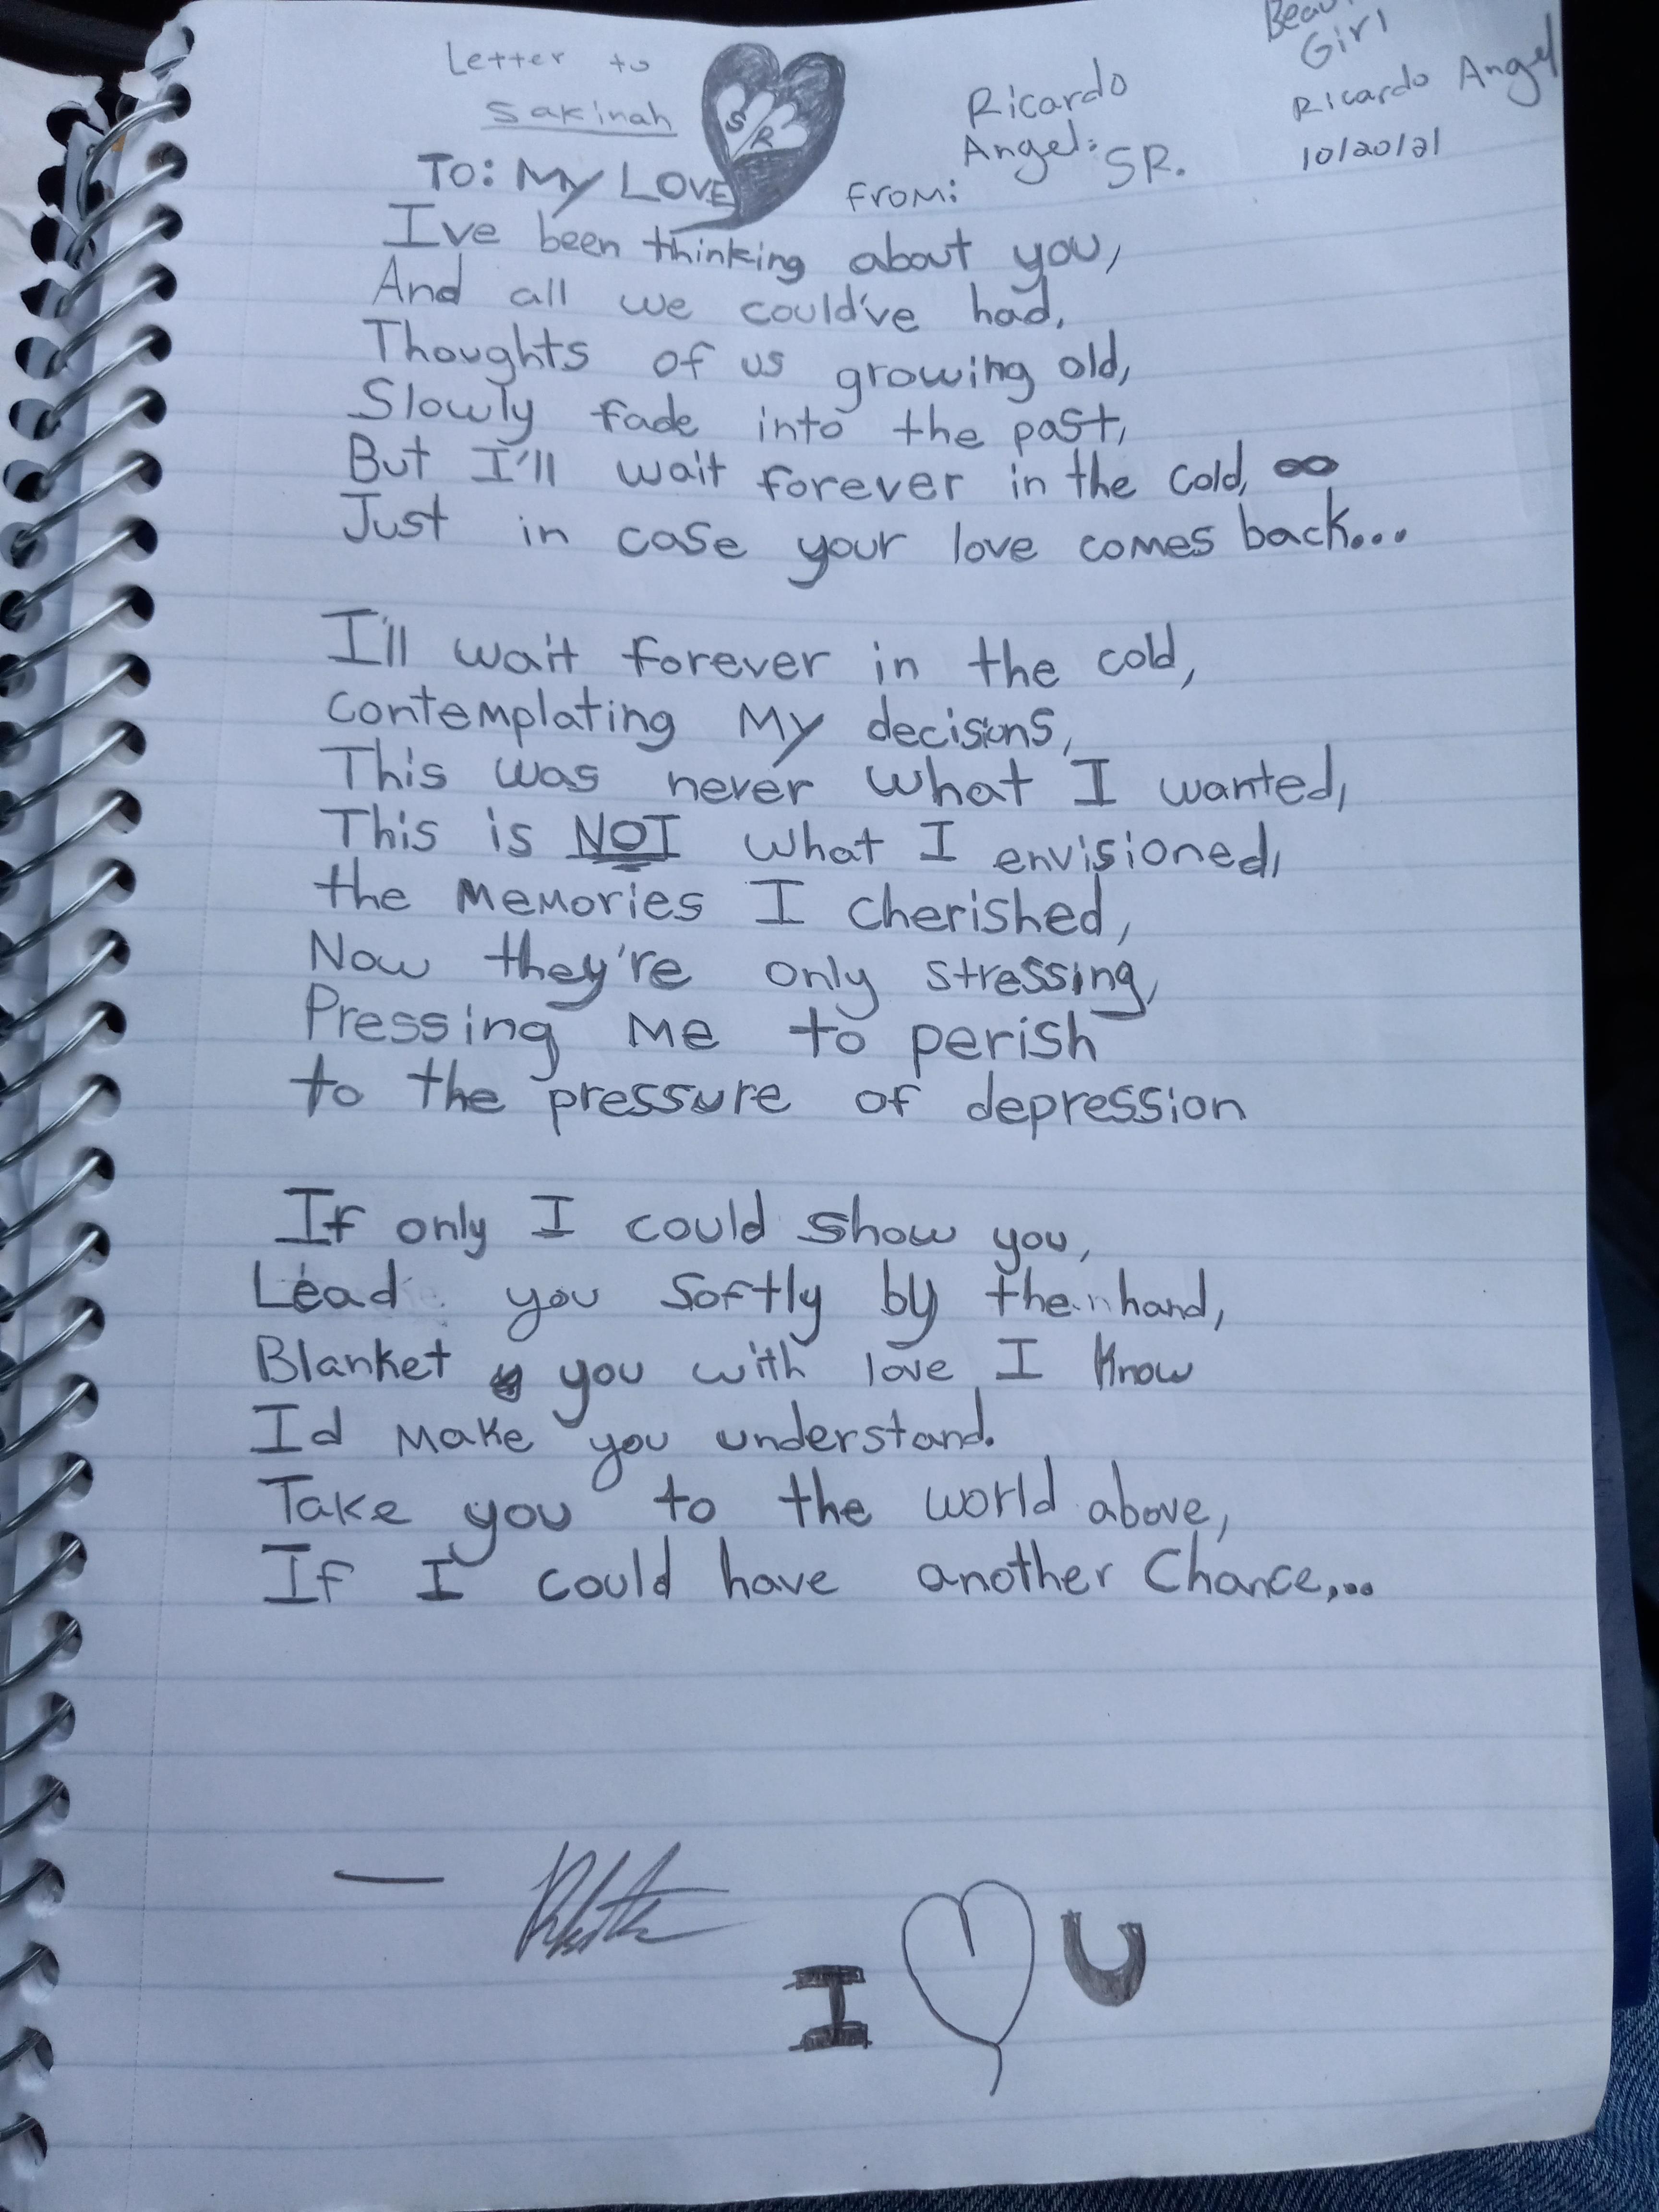 Girl
Ricardo Angel
10/20/21
Letter to
Sakinah
S/R
Ricardo
Angel: SR.
TO: My LOVE
FROM:
I've been thinking about you,
And all we could've had,
Thoughts of us growing old,
Slowly fade into the past,
But I'll wait forever in the cold, ∞
Just in case your love comes back...
I'll wait forever in the cold,
contemplating My decisions,
This was never what I wanted,
This is NOT what I envisioned,
the Memories I cherished,
Now they're only stressing,
Pressing Me to perish
to the pressure of depression
If only I could show you,
Lead you softly by the hand,
Blanket you with love I know
I'd Make you understand.
Take you to the world above,
If I could have another Chance,...
I ♡ U